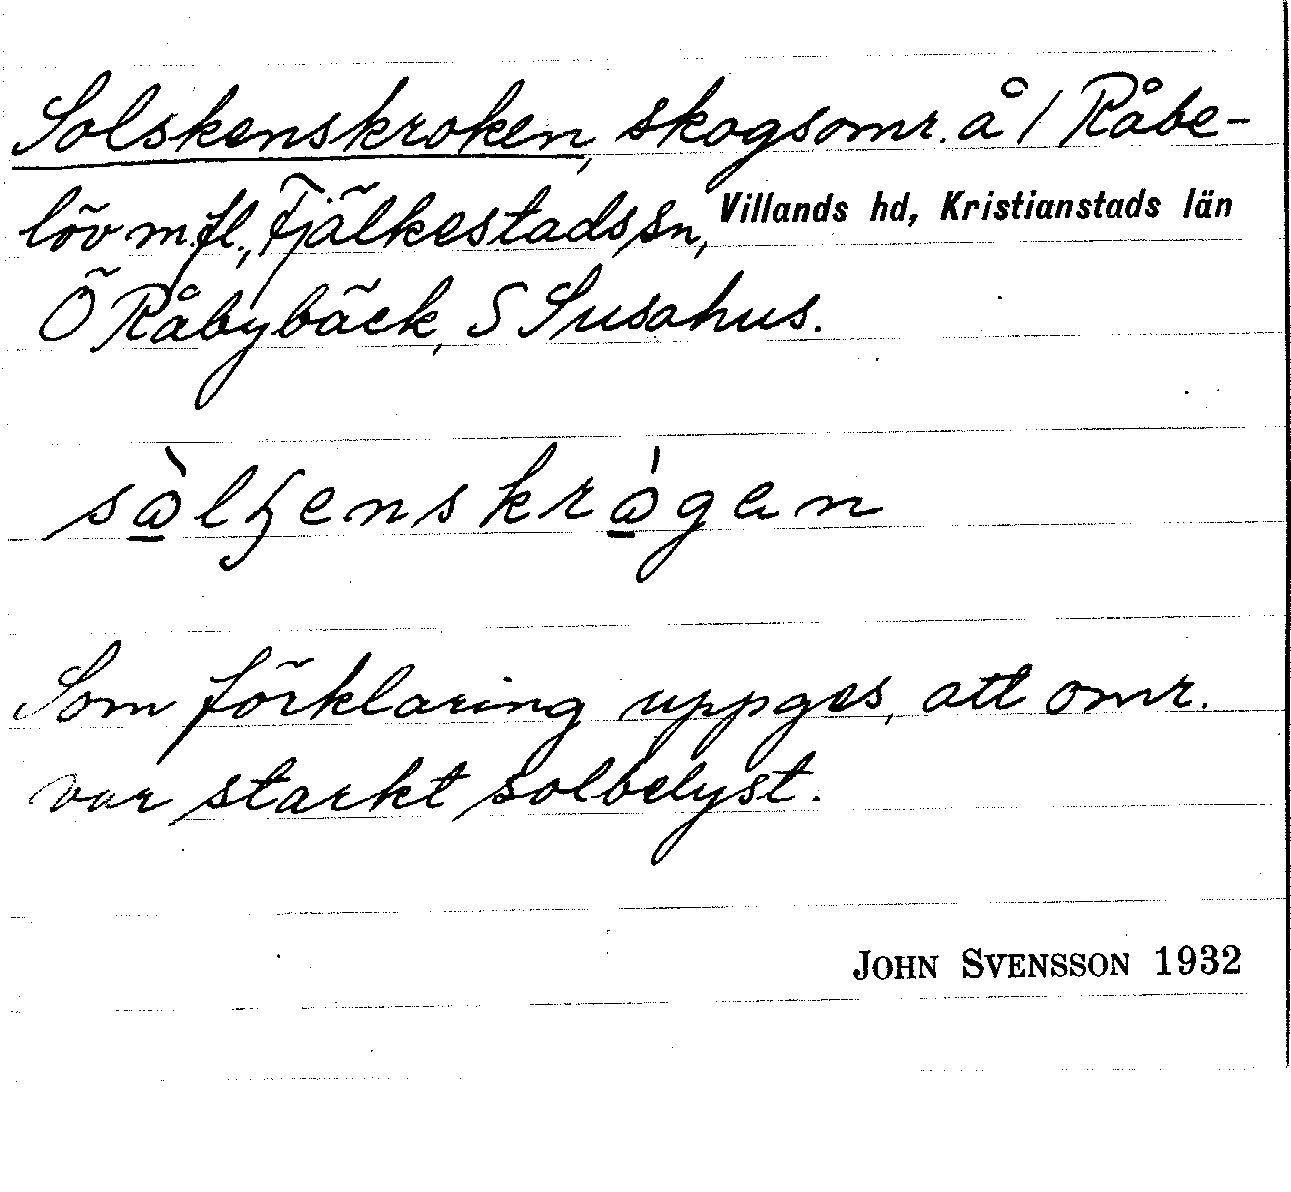 Solskenskroken, skogsomr. å 1 Råbe-
löv m.fl., Fjälkestads sn, Villands hd, Kristianstads län
Ö Råbybäck, S Susahus.
Som förklaring uppges, att omr.
var starkt solbelyst.
JOHN SVENSSON 1932